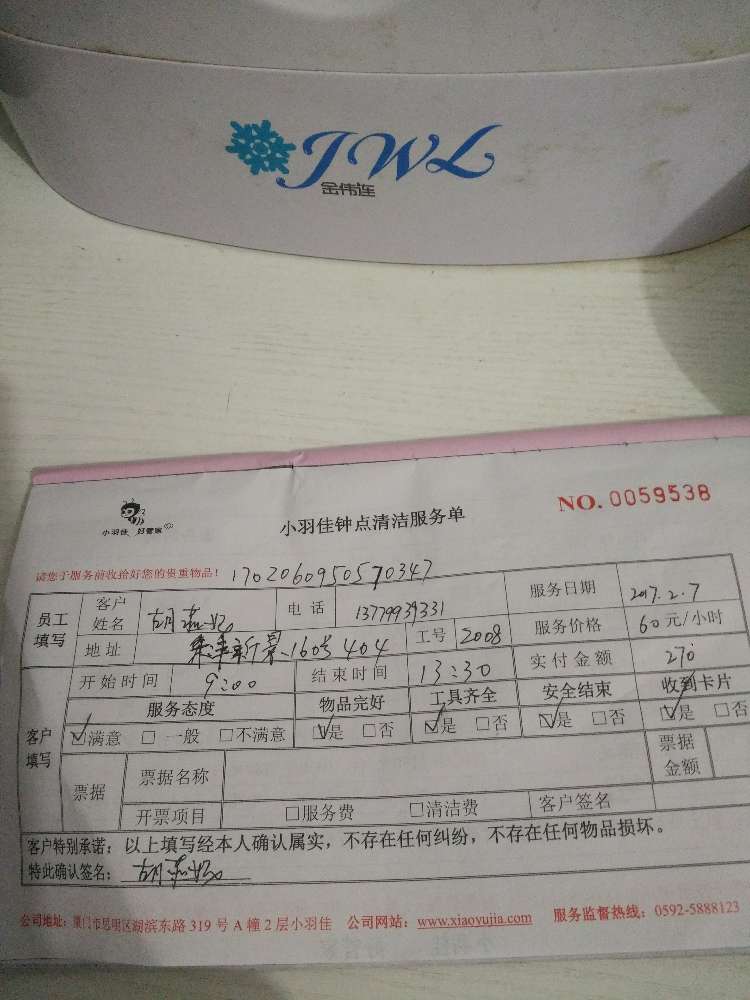 JWL
金伟连
小羽佳 好管家
小羽佳钟点清洁服务单
NO. 0059538
请您于服务前收拾好您的贵重物品！ 1702060950570347
员工填写 客户姓名 胡燕妃 电话 13779939331 服务日期 2017.2.7
地址 新景 160号 404 工号 2008 服务价格 60元/小时
开始时间 9:00 结束时间 13:30 实付金额 270
客户填写 服务态度 物品完好 工具齐全 安全结束 收到卡片
☑满意 □一般 □不满意 ☑是 □否 ☑是 □否 ☑是 □否 ☑是 □否
票据 票据名称 票据金额
开票项目 □服务费 □清洁费 客户签名
客户特别承诺：以上填写经本人确认属实，不存在任何纠纷，不存在任何物品损坏。
特此确认签名： 胡燕妃
公司地址：厦门市思明区湖滨东路 319 号 A 幢 2 层小羽佳 公司网站：www.xiaoyujia.com 服务监督热线：0592-5888123